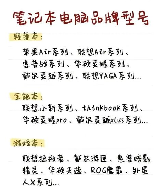 笔记本电脑品牌型号
轻薄本:
苹果Air系列、联想Air系列、
惠普战系列、华硕灵耀系列、
戴尔灵越系列、联想YAGA系列...
全能本:
联想小新系列、thinkbook系列、
华硕灵耀pro、戴尔灵越plus系列...
游戏本:
联想拯救者、戴尔游匣、惠普暗影
精灵、华硕天选、ROG魔霸、外星
人X系列...